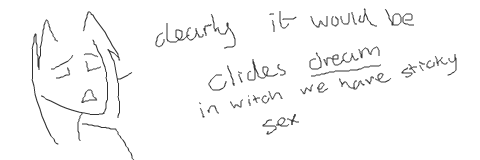 clearly it would be
clides dream
in witch we have sticky
sex